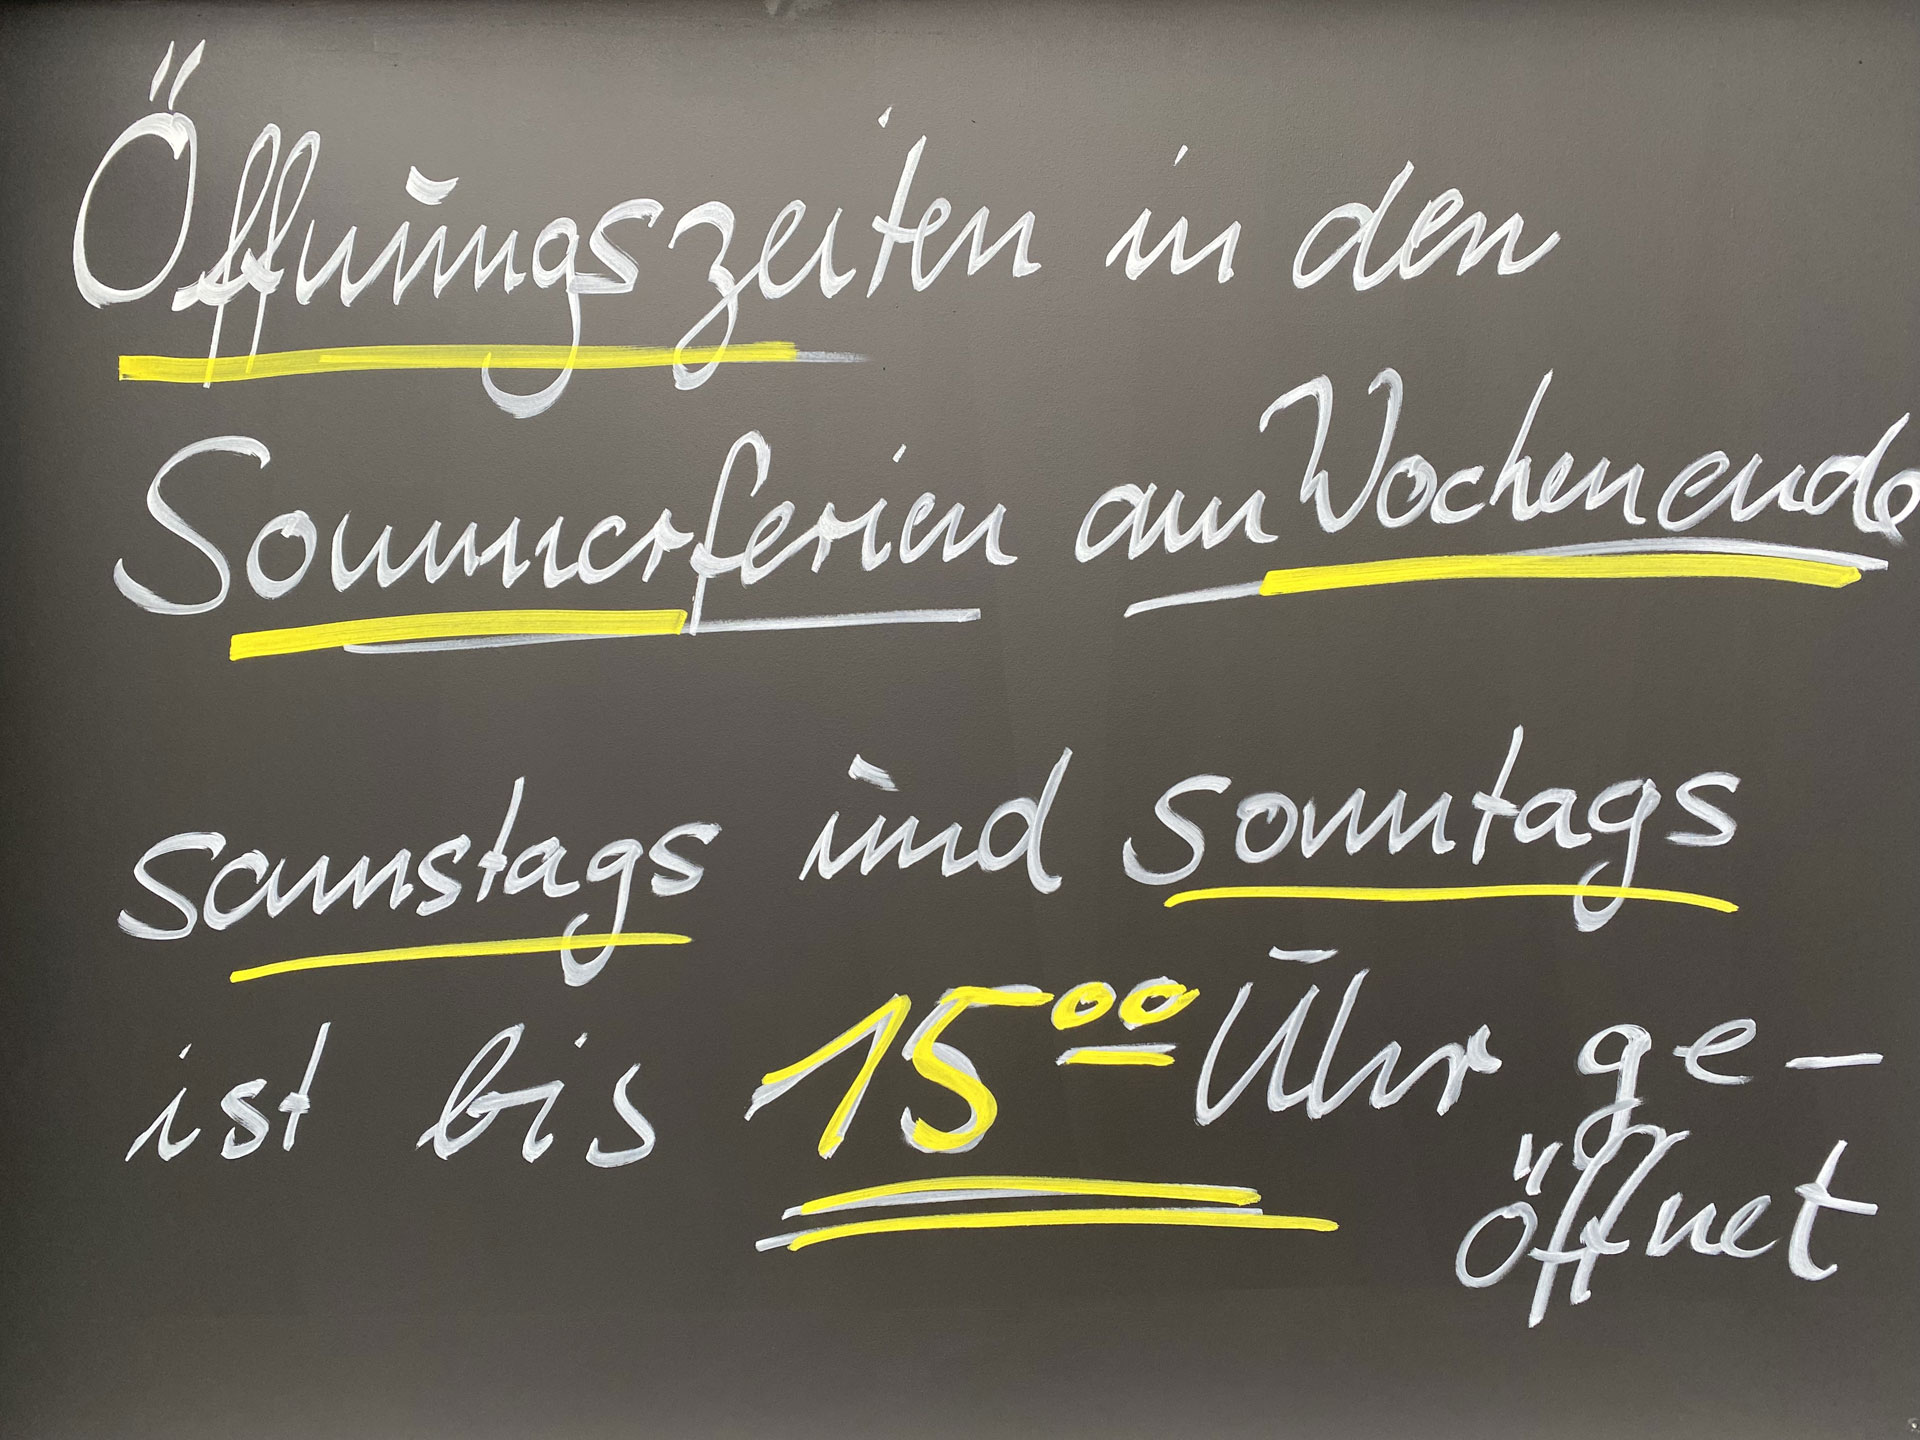 Öffnungszeiten in den
Sommerferien am Wochenende
Samstags und Sonntags
ist bis 15⁰⁰ Uhr ge-
öffnet